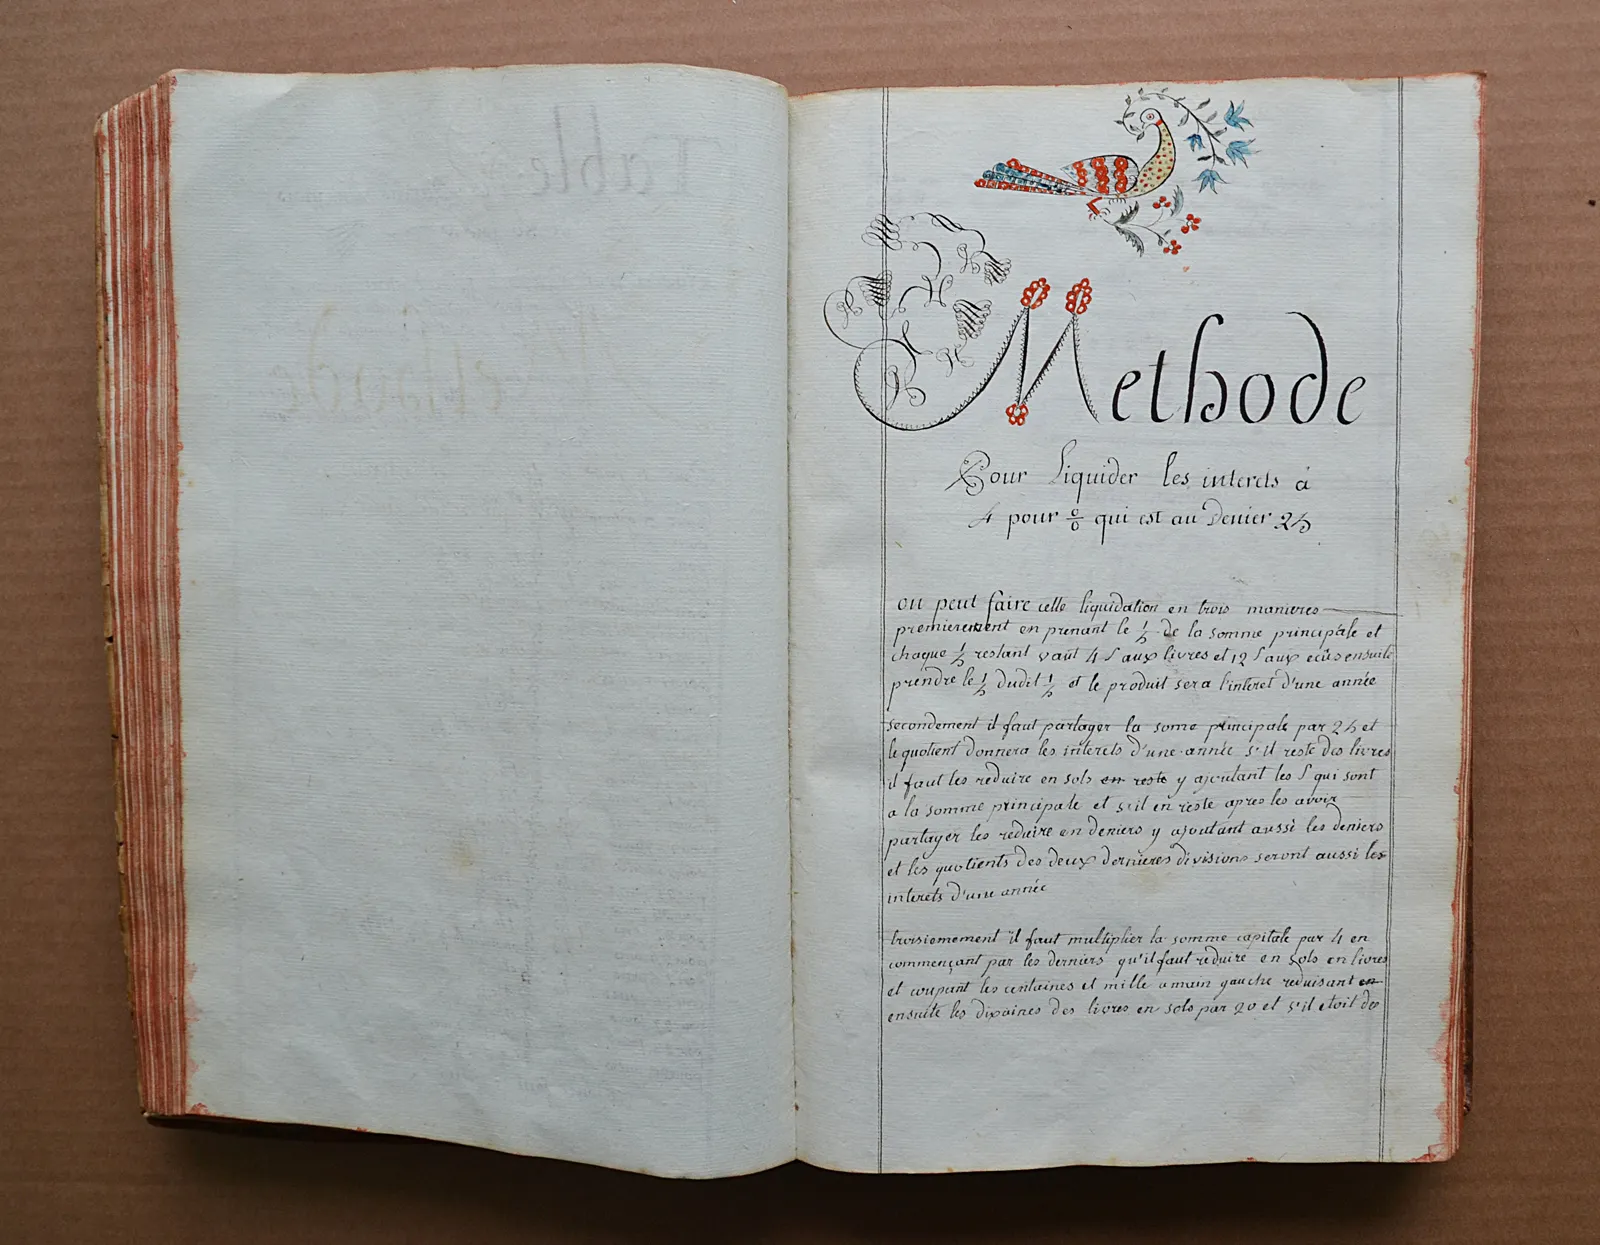 Methode
Pour Liquider les interets à
4 pour 0/0 qui est au Denier 25
on peut faire cette liquidation en trois manieres
premierement en prenant le 1/5 de la somme principale et
chaque 1/5 restant vaut 4 s aux livres et 12 s aux ecus ensuite
prendre le 1/5 dudit 1/5 et le produit sera l'interet d'une année
secondement il faut partager la some principale par 25 et
le quotient donnera les interets d'une année s'il reste des livres
il faut les reduire en sols en reste y ajoutant les s qui sont
a la somme principale et s'il en reste apres les avoir
partager les reduire en deniers y ajoutant aussi les deniers
et les quotients des deux dernieres divisions seront aussi les
interets d'une année
troisiemement il faut multiplier la somme capitale par 4 en
commençant par les derniers qu'il faut reduire en sols en livres
et coupant les centaines et mille a main gauche reduisant en
ensuite les dixaines des livres en sols par 20 et s'il etoit des